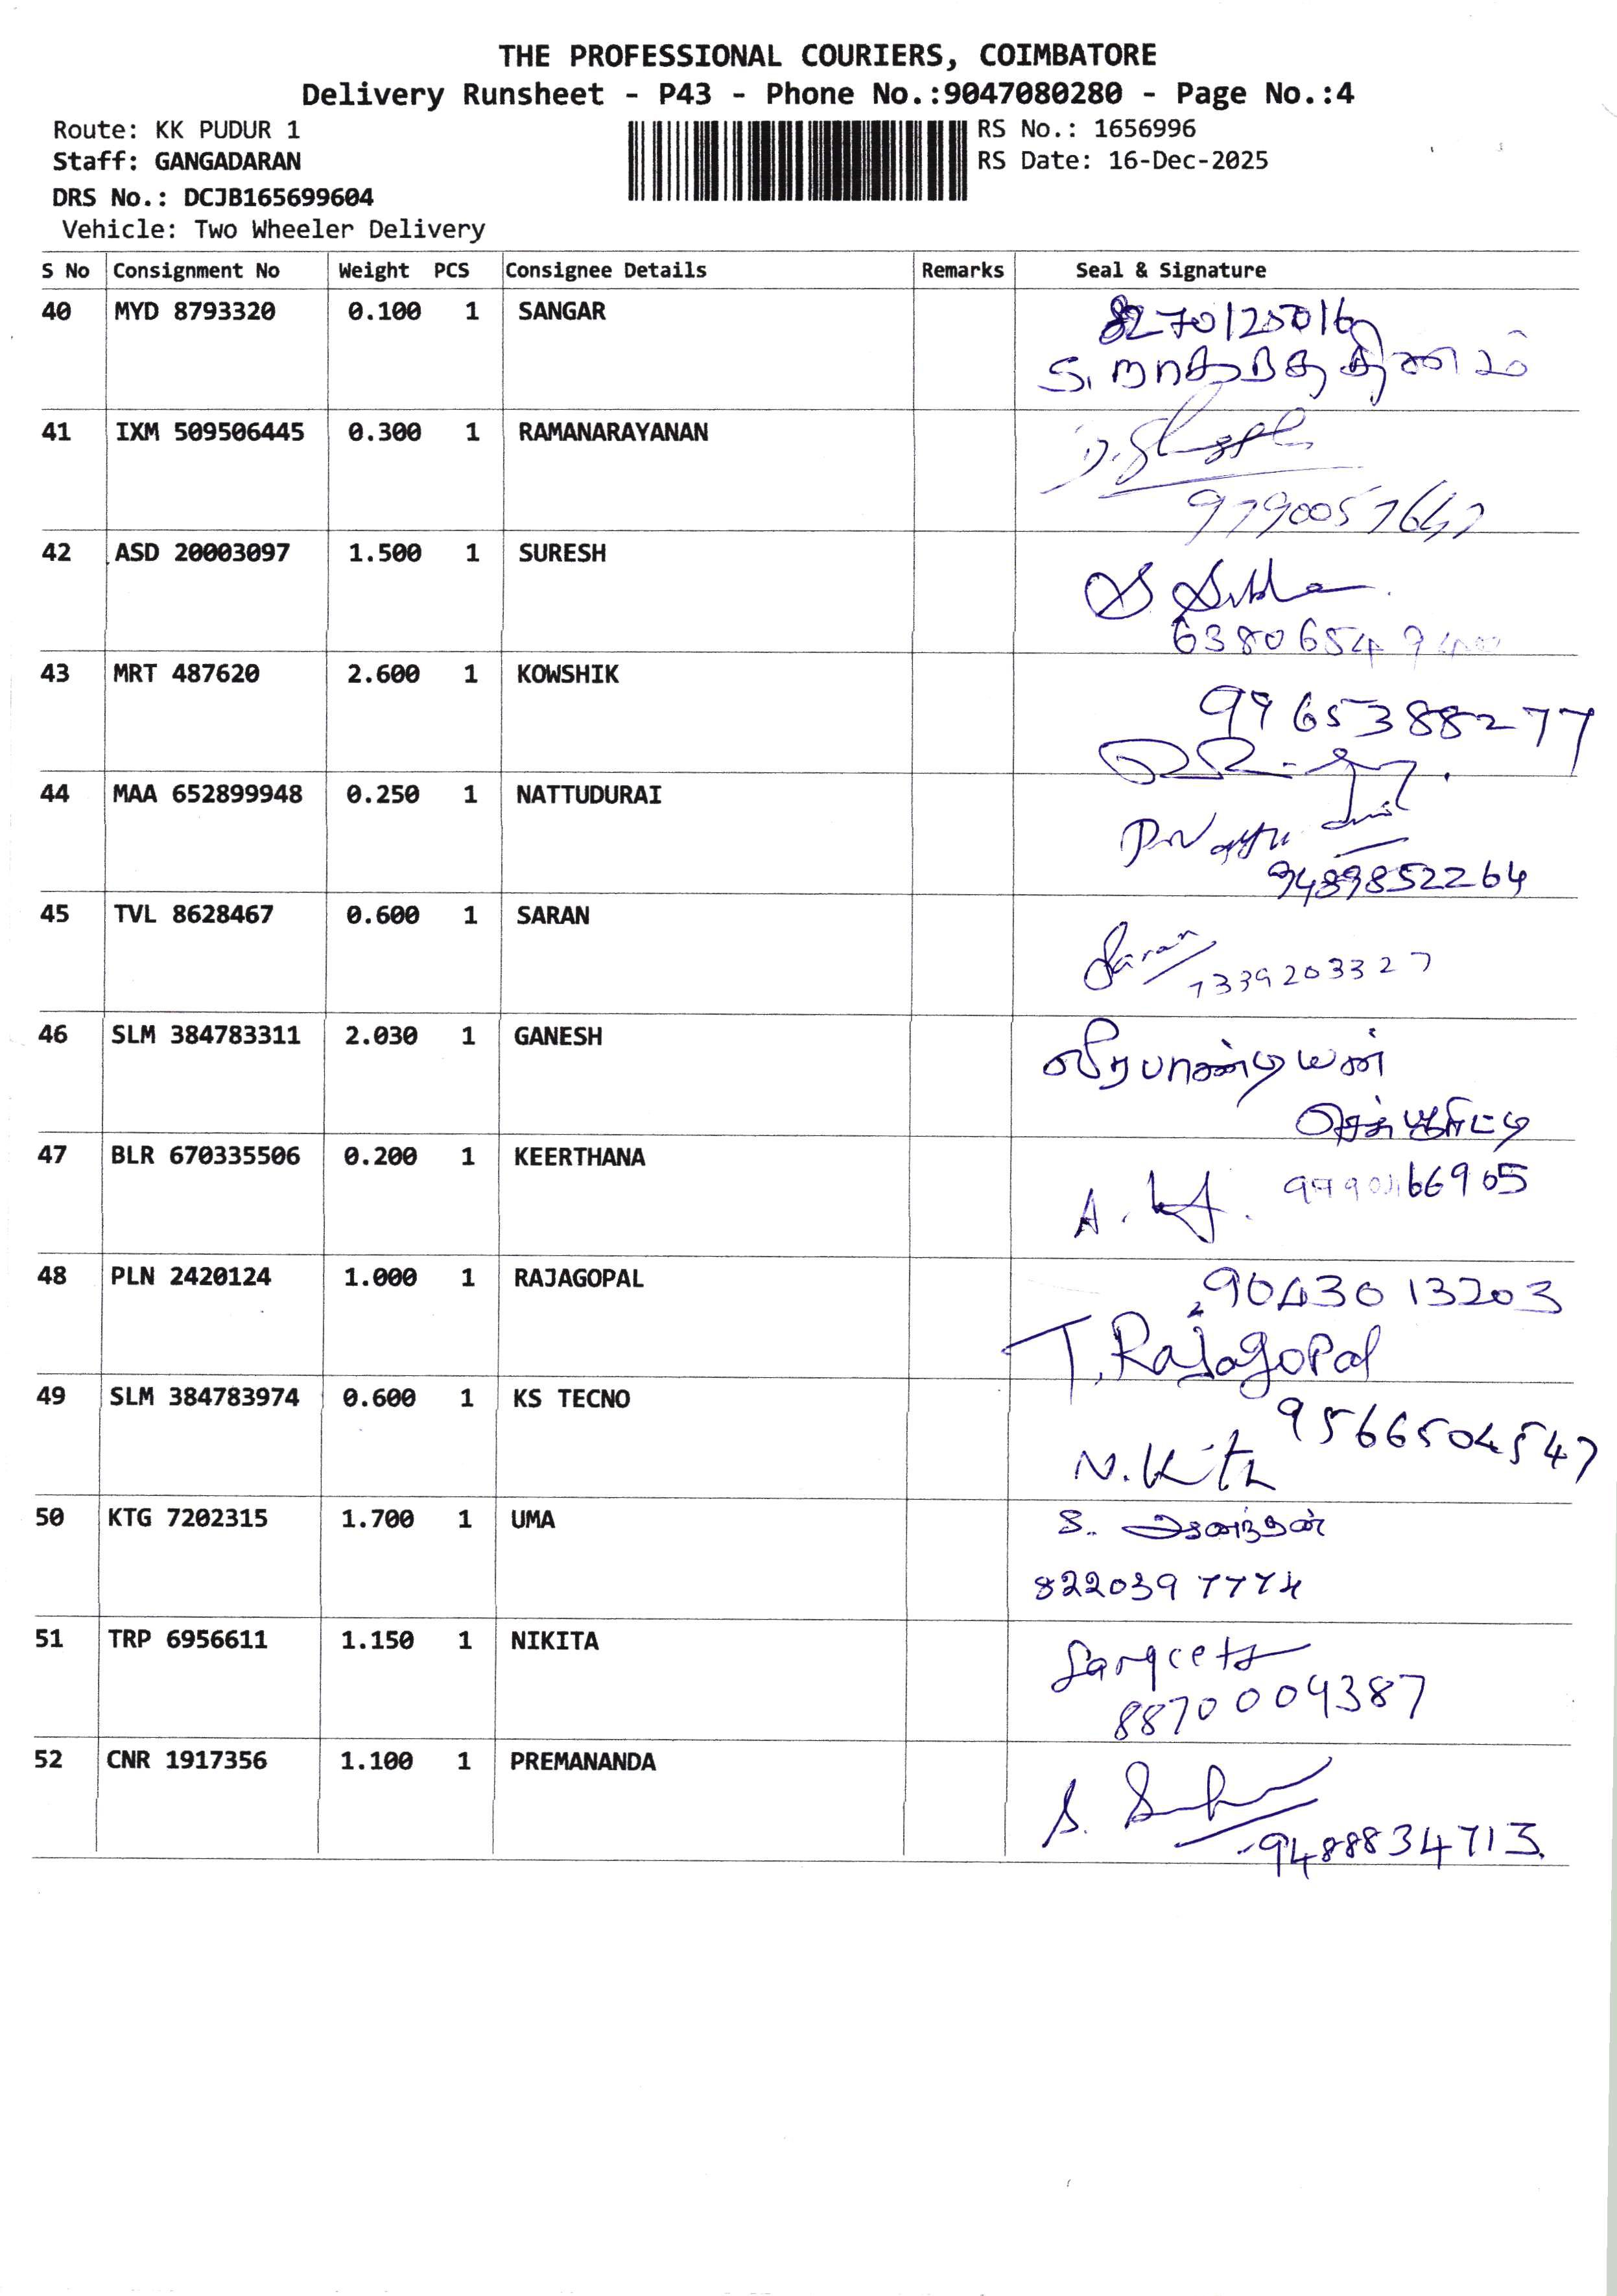 THE PROFESSIONAL COURIERS, COIMBATORE
Delivery Runsheet - P43 - Phone No.:9047080280 - Page No.:4
Route: KK PUDUR 1
RS No.: 1656996
Staff: GANGADARAN
RS Date: 16-Dec-2025
DRS No.: DCJB165699604
Vehicle: Two Wheeler Delivery
S No Consignment No Weight PCS Consignee Details Remarks Seal & Signature
40 MYD 8793320 0.100 1 SANGAR
8270125016
41 IXM 509506445 0.300 1 RAMANARAYANAN
42 ASD 20003097 1.500 1 SURESH
43 MRT 487620 2.600 1 KOWSHIK
9965388277
44 MAA 652899948 0.250 1 NATTUDURAI
9489852264
45 TVL 8628467 0.600 1 SARAN
Saran
7339203327
46 SLM 384783311 2.030 1 GANESH
வீரபாண்டியன்
செக்யூரிட்டி
47 BLR 670335506 0.200 1 KEERTHANA
48 PLN 2420124 1.000 1 RAJAGOPAL
9043013203
T.Rajagopal
49 SLM 384783974 0.600 1 KS TECNO
9566504547
50 KTG 7202315 1.700 1 UMA
8220397774
51 TRP 6956611 1.150 1 NIKITA
8870004387
52 CNR 1917356 1.100 1 PREMANANDA
9488834713